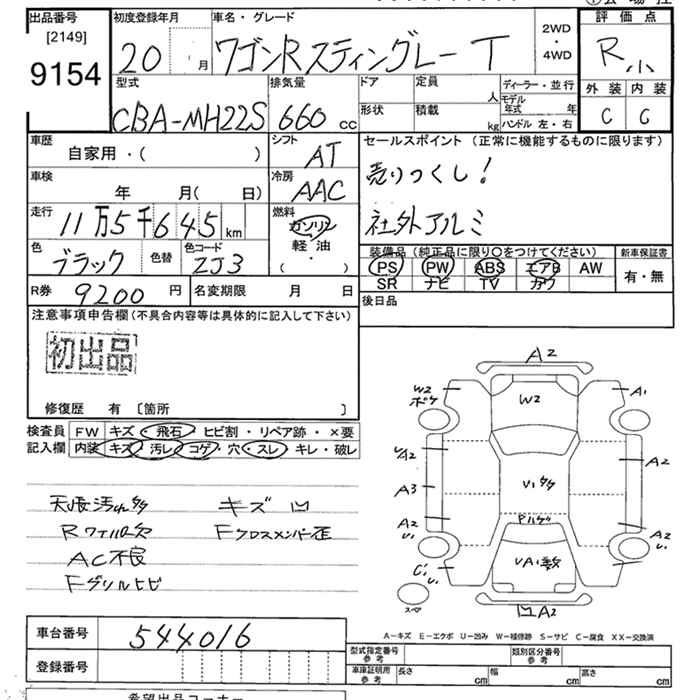 出品番号
[2149]
9154
初度登録年月
20 月
車名・グレード
ワゴンRスティングレー T
2WD
・
4WD
評価点
R
外装 内装
C C
型式
CBA-MH22S
排気量
660 cc
ドア
形状
定員 人
積載 kg
ディーラー・並行
モデル年式 年
ハンドル 左・右
車歴
自家用・( )
シフト
AT
車検
年 月( 日)
冷房
AAC
走行
11万5千645 km
燃料
ガソリン
軽油
( )
色
ブラック
色替
色コード
ZJ3
R券 9200 円
名変期限 月 日
セールスポイント(正常に機能するものに限ります)
売りつくし!
社外アルミ
装備品(純正品に限り〇をつけてください)
PS PW ABS エアB AW
SR ナビ TV カワ
新車保証書
有・無
後日品
注意事項申告欄(不具合内容等は具体的に記入して下さい)
初出品
修復歴 有 〔箇所 〕
検査員記入欄
FW キズ・飛石・ヒビ割・リペア跡・×要
内装 キズ・汚レ・コゲ・穴・スレ・キレ・破レ
天張汚れ多 キズ凹
Rワイパー欠 Fクロスメンバー歪
AC不良
Fグリルヒビ
A2
W2
ボケ
W2
A1
A2
A2
A3
A2
U1
A2
U1
スペア
A2
車台番号 544016
登録番号
A-キズ E-エクボ U-凹み W-補修跡 S-サビ C-腐食 XX-交換済
型式指定番号
参考
類別区分番号
参考
車庫証明用
参考
長さ cm
幅 cm
高さ cm
希望出品コーナー